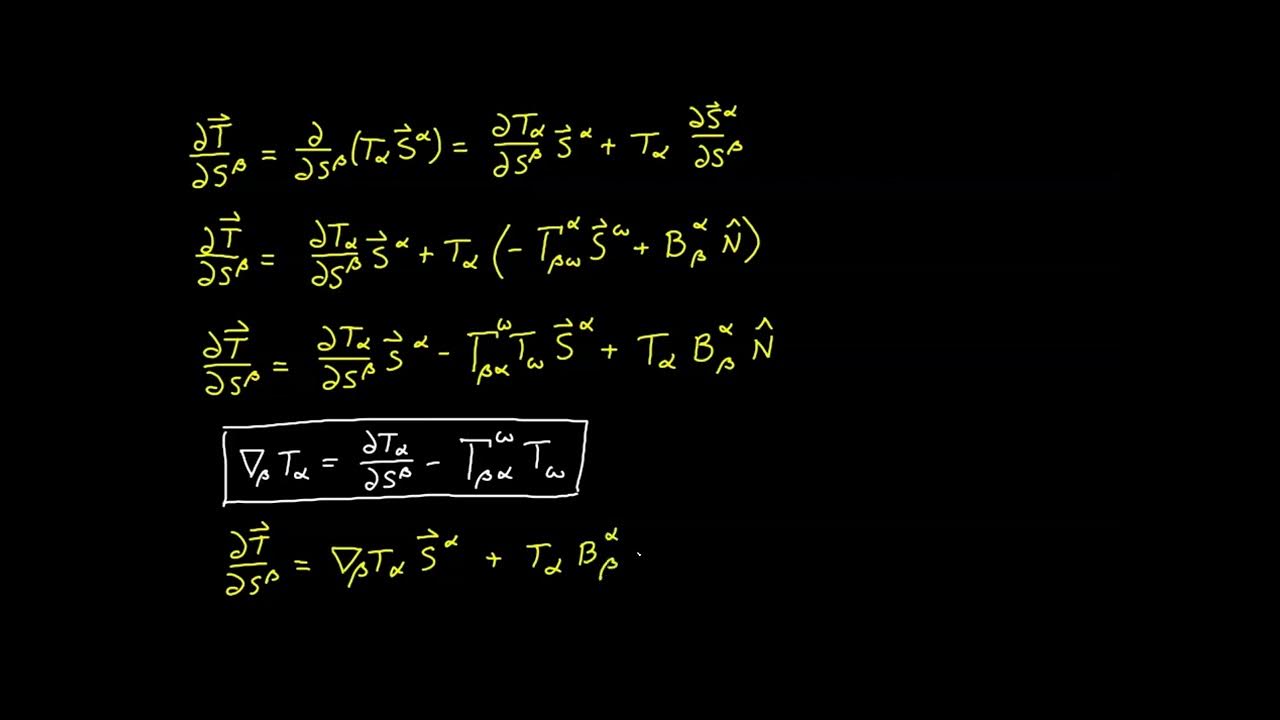 ∂T⃗/∂S^β = ∂/∂S^β (T_α S⃗^α) = ∂T_α/∂S^β S⃗^α + T_α ∂S⃗^α/∂S^β
∂T⃗/∂S^β = ∂T_α/∂S^β S⃗^α + T_α (−Γ^α_βω S⃗^ω + B^α_β N̂)
∂T⃗/∂S^β = ∂T_α/∂S^β S⃗^α − Γ^ω_βα T_ω S⃗^α + T_α B^α_β N̂
∇_β T_α = ∂T_α/∂S^β − Γ^ω_βα T_ω
∂T⃗/∂S^β = ∇_β T_α S⃗^α + T_α B^α_β